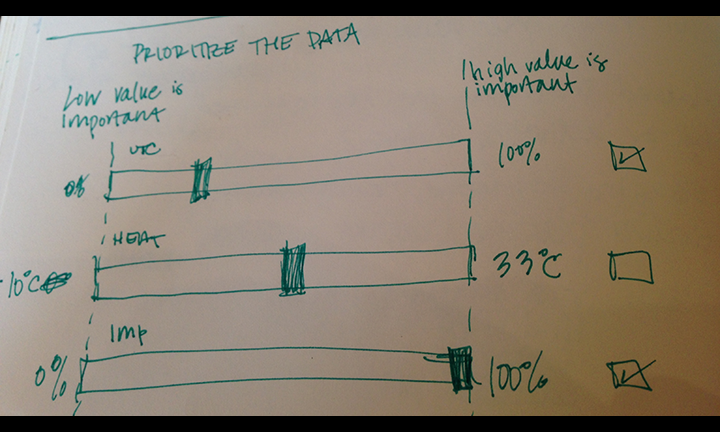 PRIORITIZE THE DATA
Low value is
important
high value is
important
UTC
0%
100%
HEAT
-10°C
33°C
Imp
0%
100%